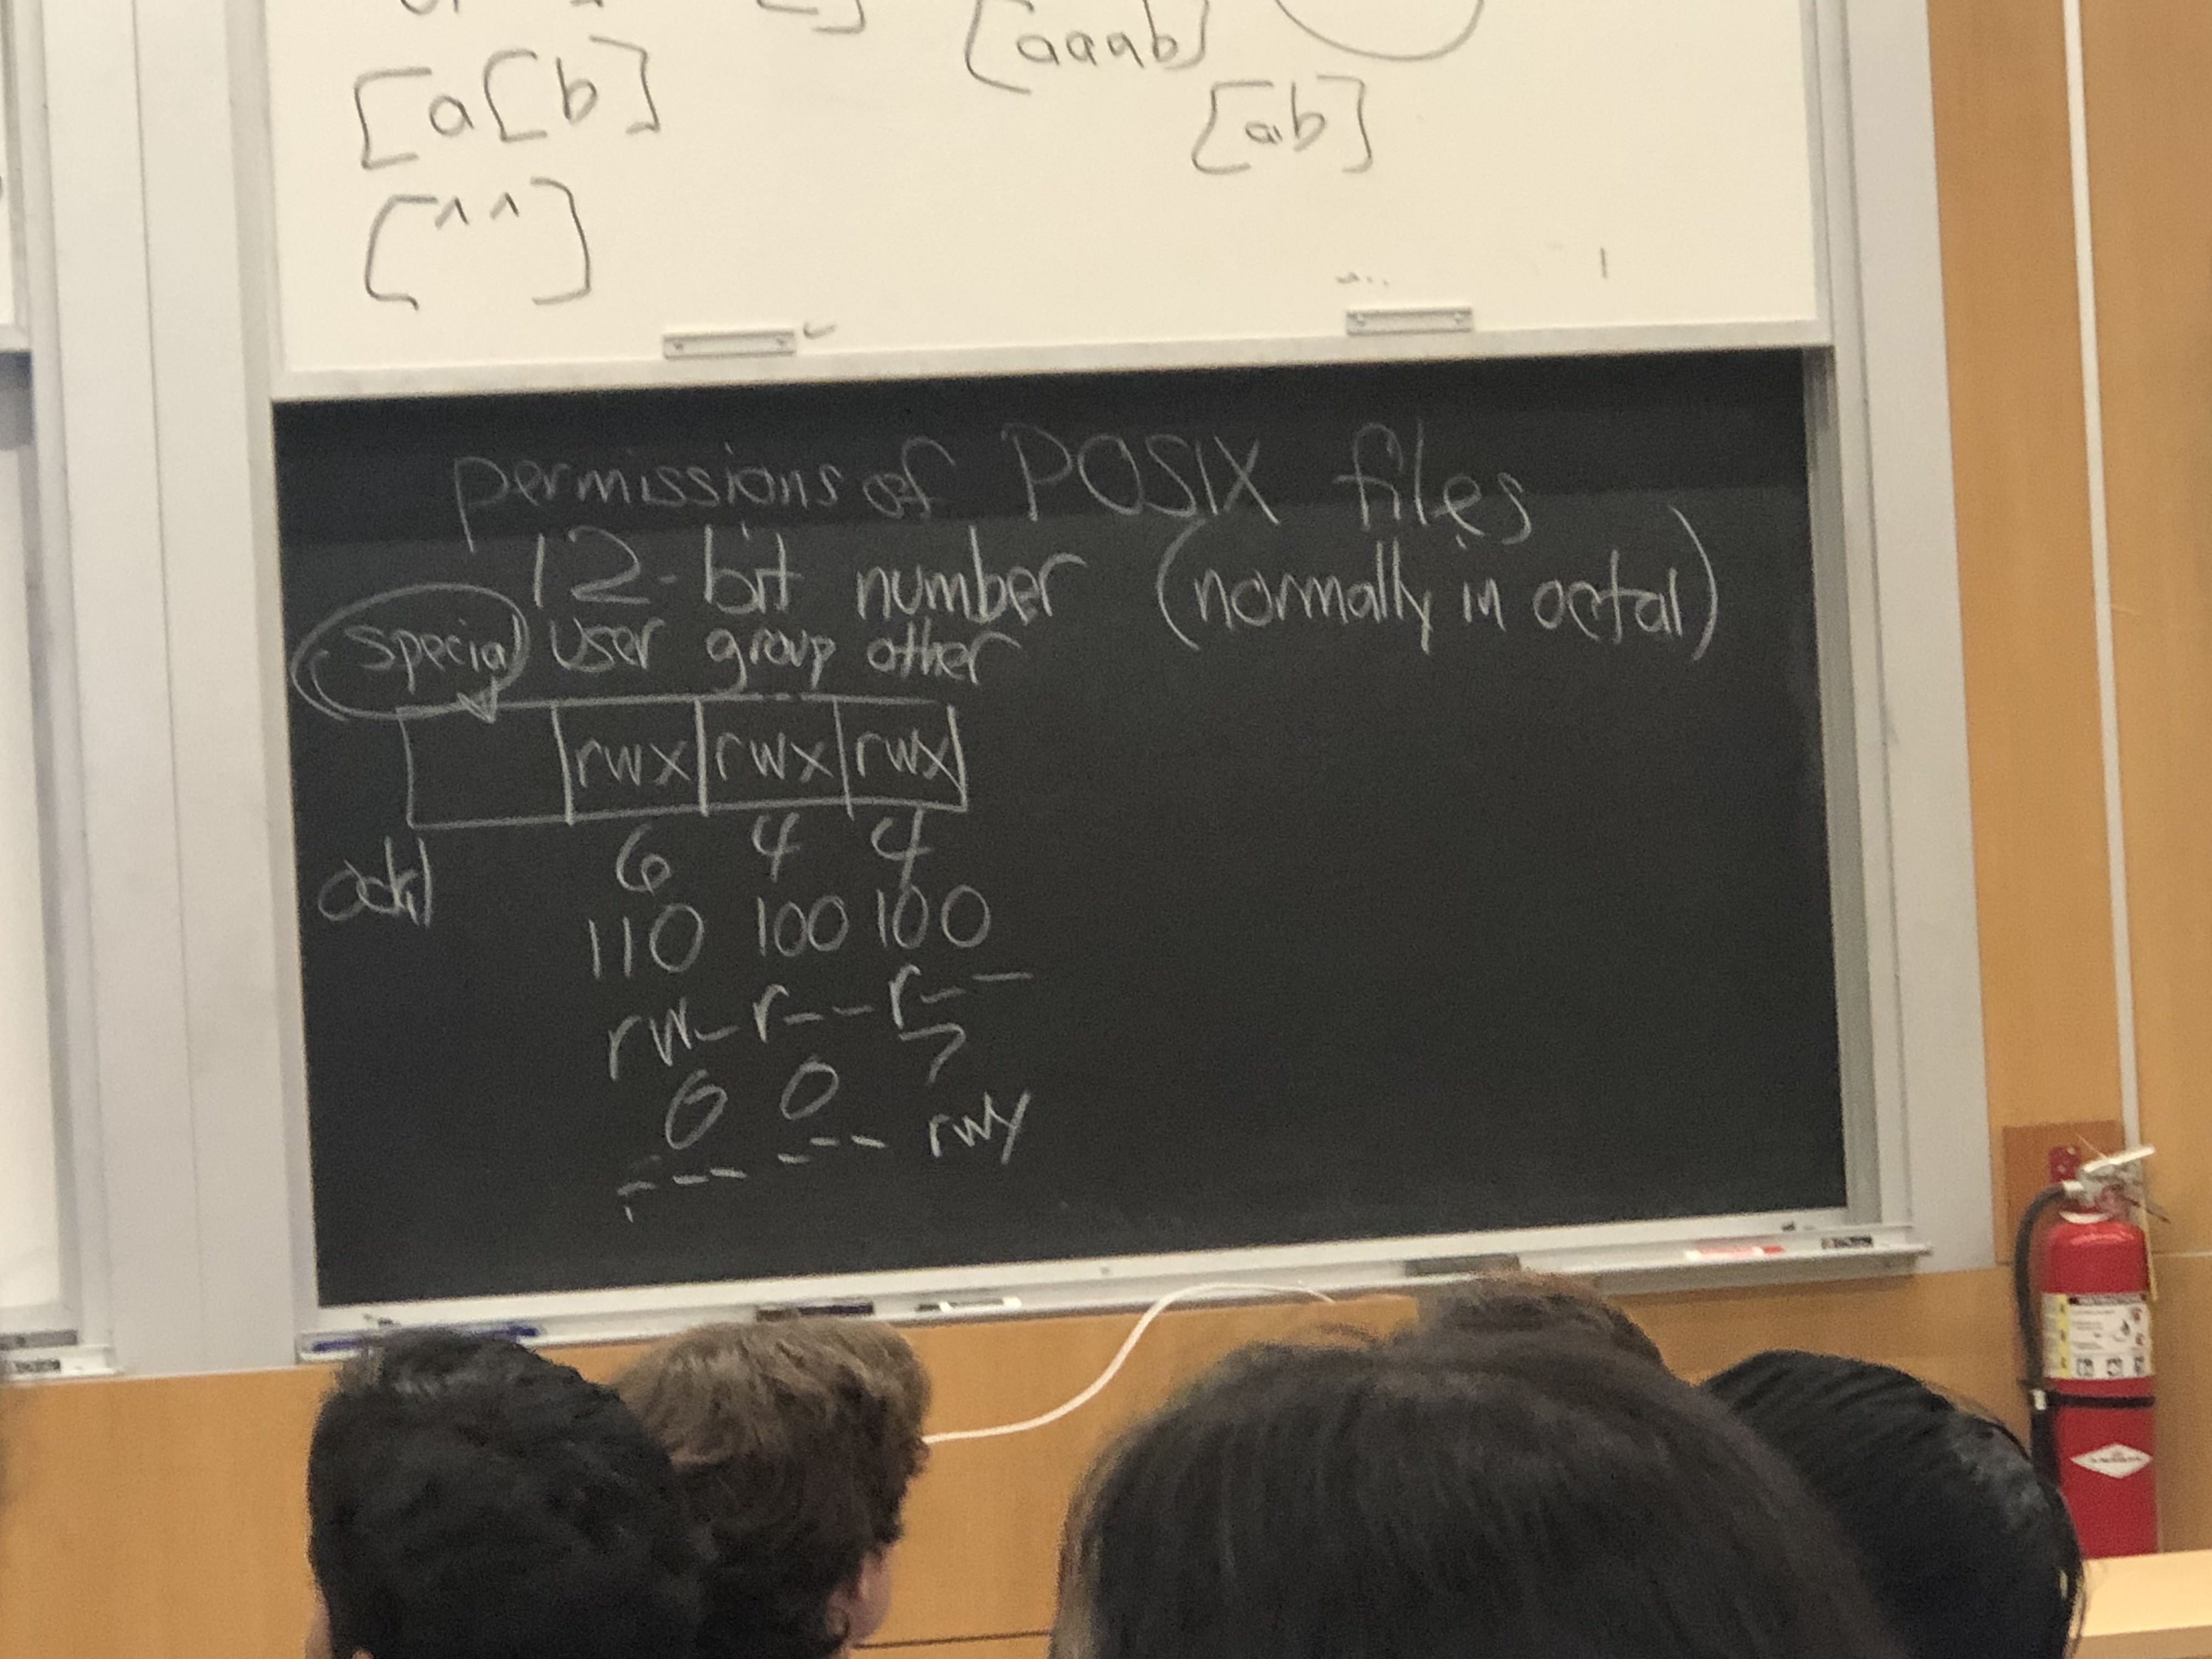 [aaab]
[a[b]
[ab]
[^^]
permissions of POSIX files
12-bit number (normally in octal)
special user group other
rwx rwx rwx
octal 6 4 4
110 100 100
rw-r--r--
0 0 7
--- --- rwx